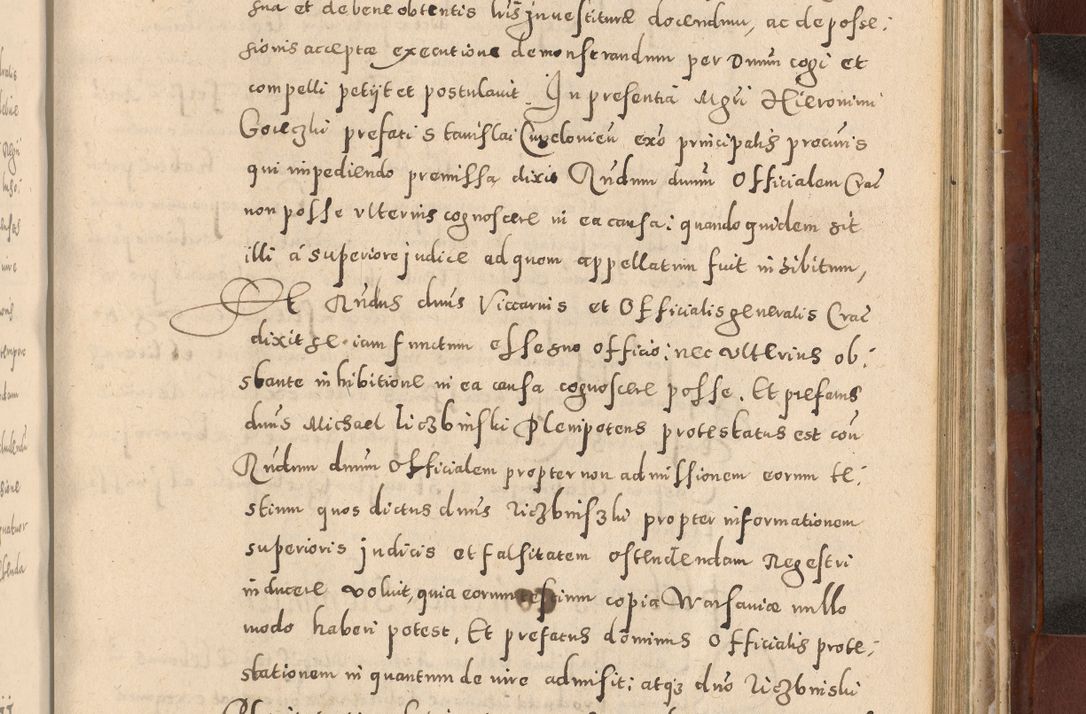 sua et de bene obtentis lris investiturae docendum, ac de posse:
ssionis acceptae executione demonstrandum per Dnum cogi et
compelli petijt et postulavit. In presentia Mgri Hieronimi
prefati Stanislai exo principalis procuris
qui impediendo premissa dixit Rndum dnum Officialem Crac
non posse ulterius cognoscere in ea causa: quando quidem sit
illi á superiore judice ad quem appellatum fuit inhibitum,
Et Rndus dnus Viccarius et Officialis generalis Crac
dixit se iam functum esse suo officio: nec ulterius ob:
stante inhibitione in ea causa cognoscere posse. Et prefatus
dnus Michael Liczbinski Plenipotens protestatus est con
Rndum dnum Officialem propter non admissionem eorum te:
stium quos dictus dnus Liczbinszki propter informationem
superioris judicis et falsitatem ostendendam Regestri
inducere voluit, quia eorum testium copia Warsaviae nullo
modo haberi potest. Et prefatus dominus Officialis prote:
stationem in quantum de iure admisit: atq3 dno Liczbinski